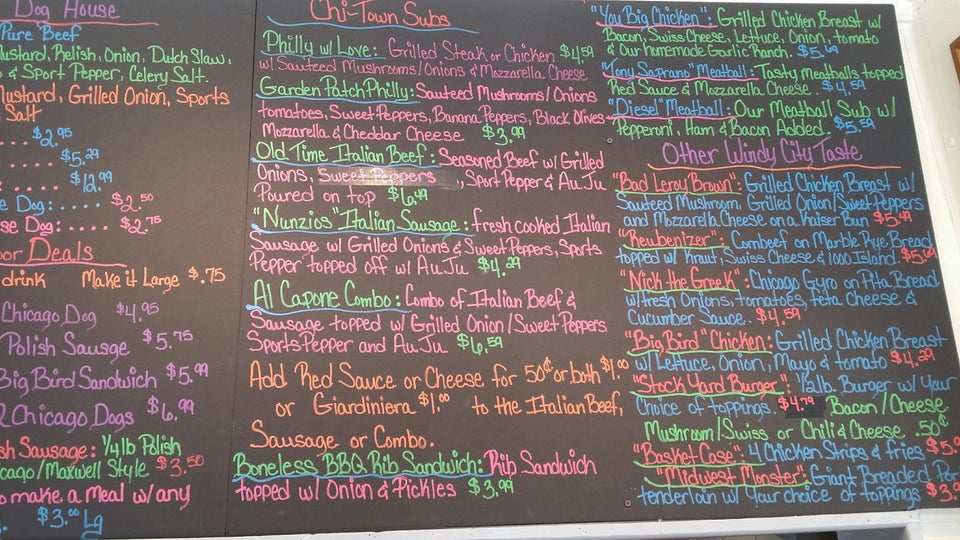 Dog House
Pure Beef
Mustard, Relish, Onion, Dutch Slaw,
& Sport Pepper, Celery Salt.
Mustard, Grilled Onion, Sports
Salt
.... $2.95
..... $5.29
...... $12.99
Dog:..... $2.50
Dog:.... $2.75
Deals
drink Make it Large $.75
Chicago Dog $4.95
Polish Sausge $5.75
Big Bird Sandwich $5.99
2 Chicago Dogs $6.99
Sausage: 1/4 lb Polish
/Maxwell Style $3.50
to make a Meal w/ any
$3.00 Lg
Chi-Town Subs
Philly w/ Love: Grilled Steak or Chicken $4.59
w/ Sauteed Mushrooms/Onions & Mozzarella Cheese
Garden Patch Philly: Sauteed Mushrooms/Onions
tomatoes, Sweet Peppers, Banana Peppers, Black Olives
Mozzarella & Cheddar Cheese $3.99
Old Time Italian Beef: Seasoned Beef w/ Grilled
Onions, Sweet Peppers, Sport Pepper & Au Ju
Poured on top $6.49
"Nunzios" Italian Sausage: fresh cooked Italian
Sausage w/ Grilled Onions & Sweet Peppers, Sports
Pepper topped off w/ Au Ju $4.29
Al Capone Combo: Combo of Italian Beef &
Sausage topped w/ Grilled Onion/Sweet Peppers
Sports Pepper and Au Ju $6.59
Add Red Sauce or Cheese for 50¢ or both $1.00
or Giardiniera $1.00 to the Italian Beef,
Sausage or Combo.
Boneless BBQ Rib Sandwich: Rib Sandwich
topped w/ Onion & Pickles $3.99
"You Big Chicken": Grilled Chicken Breast w/
Bacon, Swiss Cheese, Lettuce, Onion, tomato
& Our homemade Garlic Ranch. $5.49
"Tony Saprano" Meatball: Tasty meatballs topped
Red Sauce & Mozzarella Cheese. $4.59
"Diesel" Meatball: Our Meatball Sub w/
Pepperoni, Ham & Bacon Added. $5.59
Other Windy City Taste
"Bad Leroy Brown": Grilled Chicken Breast w/
Sauteed Mushroom, Grilled Onion/Sweet Peppers
and Mozzarella Cheese on a Kaiser Bun $5.49
"Reubenizer": Cornbeef on Marble Rye Bread
topped w/ Kraut, Swiss Cheese & 1000 Island.
"Nick the Greek": Chicago Gyro on Pita Bread
w/ fresh Onions, tomatoes, feta Cheese &
Cucumber Sauce. $4.59
"Big Bird" Chicken: Grilled Chicken Breast
w/ Lettuce, Onion, Mayo & tomato $4.29
"Stock Yard Burger": 1/2 lb. Burger w/ Your
Choice of toppings. $4.79 Bacon/Cheese
Mushroom/Swiss or Chili & Cheese .50¢
"Basket Case": 4 Chicken Strips & fries
"Midwest Monster": Giant Breaded
tenderloin w/ Your choice of toppings